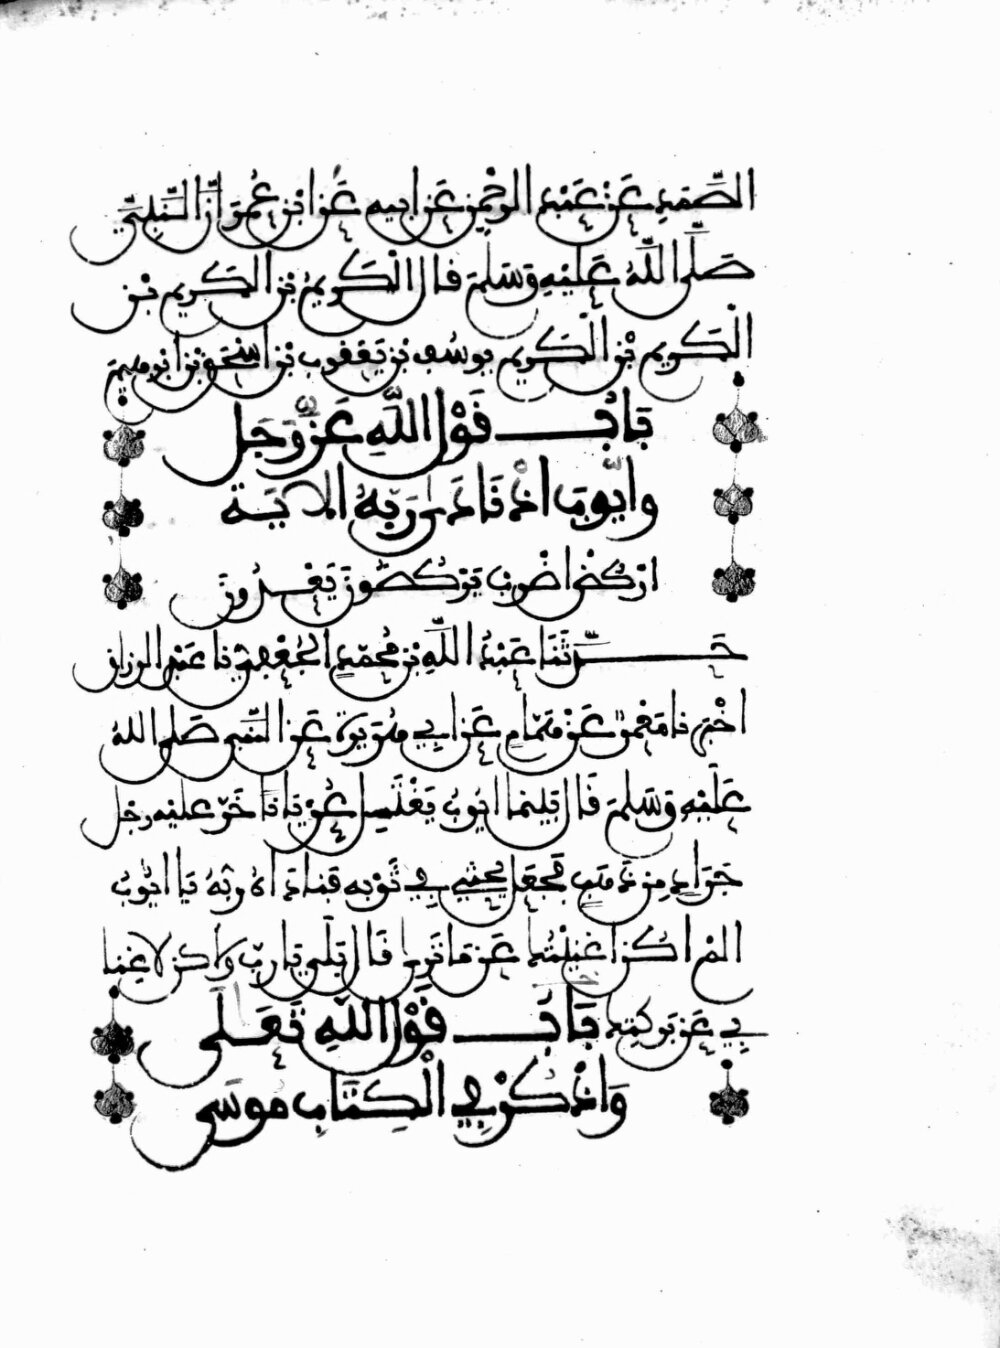 الصَّمَدِ عَنْ عَبْدِ الرَّحْمٰنِ عَنْ ابِيهِ عَنْ ابْنِ عُمَرَ انَّ النَّبِيَّ
صَلَّى اللَّهُ عَلَيْهِ وَسَلَّمَ قَالَ الْكَرِيمُ بْنُ الْكَرِيمِ بْنِ
الْكَرِيمِ بْنِ الْكَرِيمِ يوسُف بْنُ يَعْقُوب بْنِ اسْحَقَ بْنِ ابْرهِيمَ
بَابُ قَوْلِ اللَّهِ عَزَّ وَجَلَّ
وَايُّوبَ اذْ نَادَى رَبَّهُ الايَةَ
ارْكُضْ اضْرِب يَرْكُضُونَ يَعْدُونَ
حَدَّثَنَا عَبْدُ اللَّهِ بْنُ مُحَمَّدٍ الْجُعْفِيُّ نا عَبْدُ الرزاق
اخْبَرَنا مَعْمَرٌ عَنْ هَمَّامٍ عَنْ ابِي هُرَيْرَةَ عَنِ النَّبِي صَلى اللهُ
عَلَيْهِ وَسَلَّمَ قَالَ بَيْنَمَا ايُوبُ يَغْتَسِلُ عُرْيَانًا خَرَّ عليْه رجل
جَرَادٍ مِن ذَهَبٍ فَجَعَلَ يَحْثِي فِي ثَوْبِهِ فَنادَاهُ رَبُّهُ يَا ايُّوبُ
الَمْ اكُنْ اغْنَيْتُكَ عَنْ مَا تَرى قَالَ بَلَى يَا رَبِّ وَلَكن لا غِنا
بِي عَنْ بَركَتِكَ بَابُ قَوْلِ اللهِ تَعَلَى
وَاذْكُرْ فِي الْكِتَابِ مُوسَى